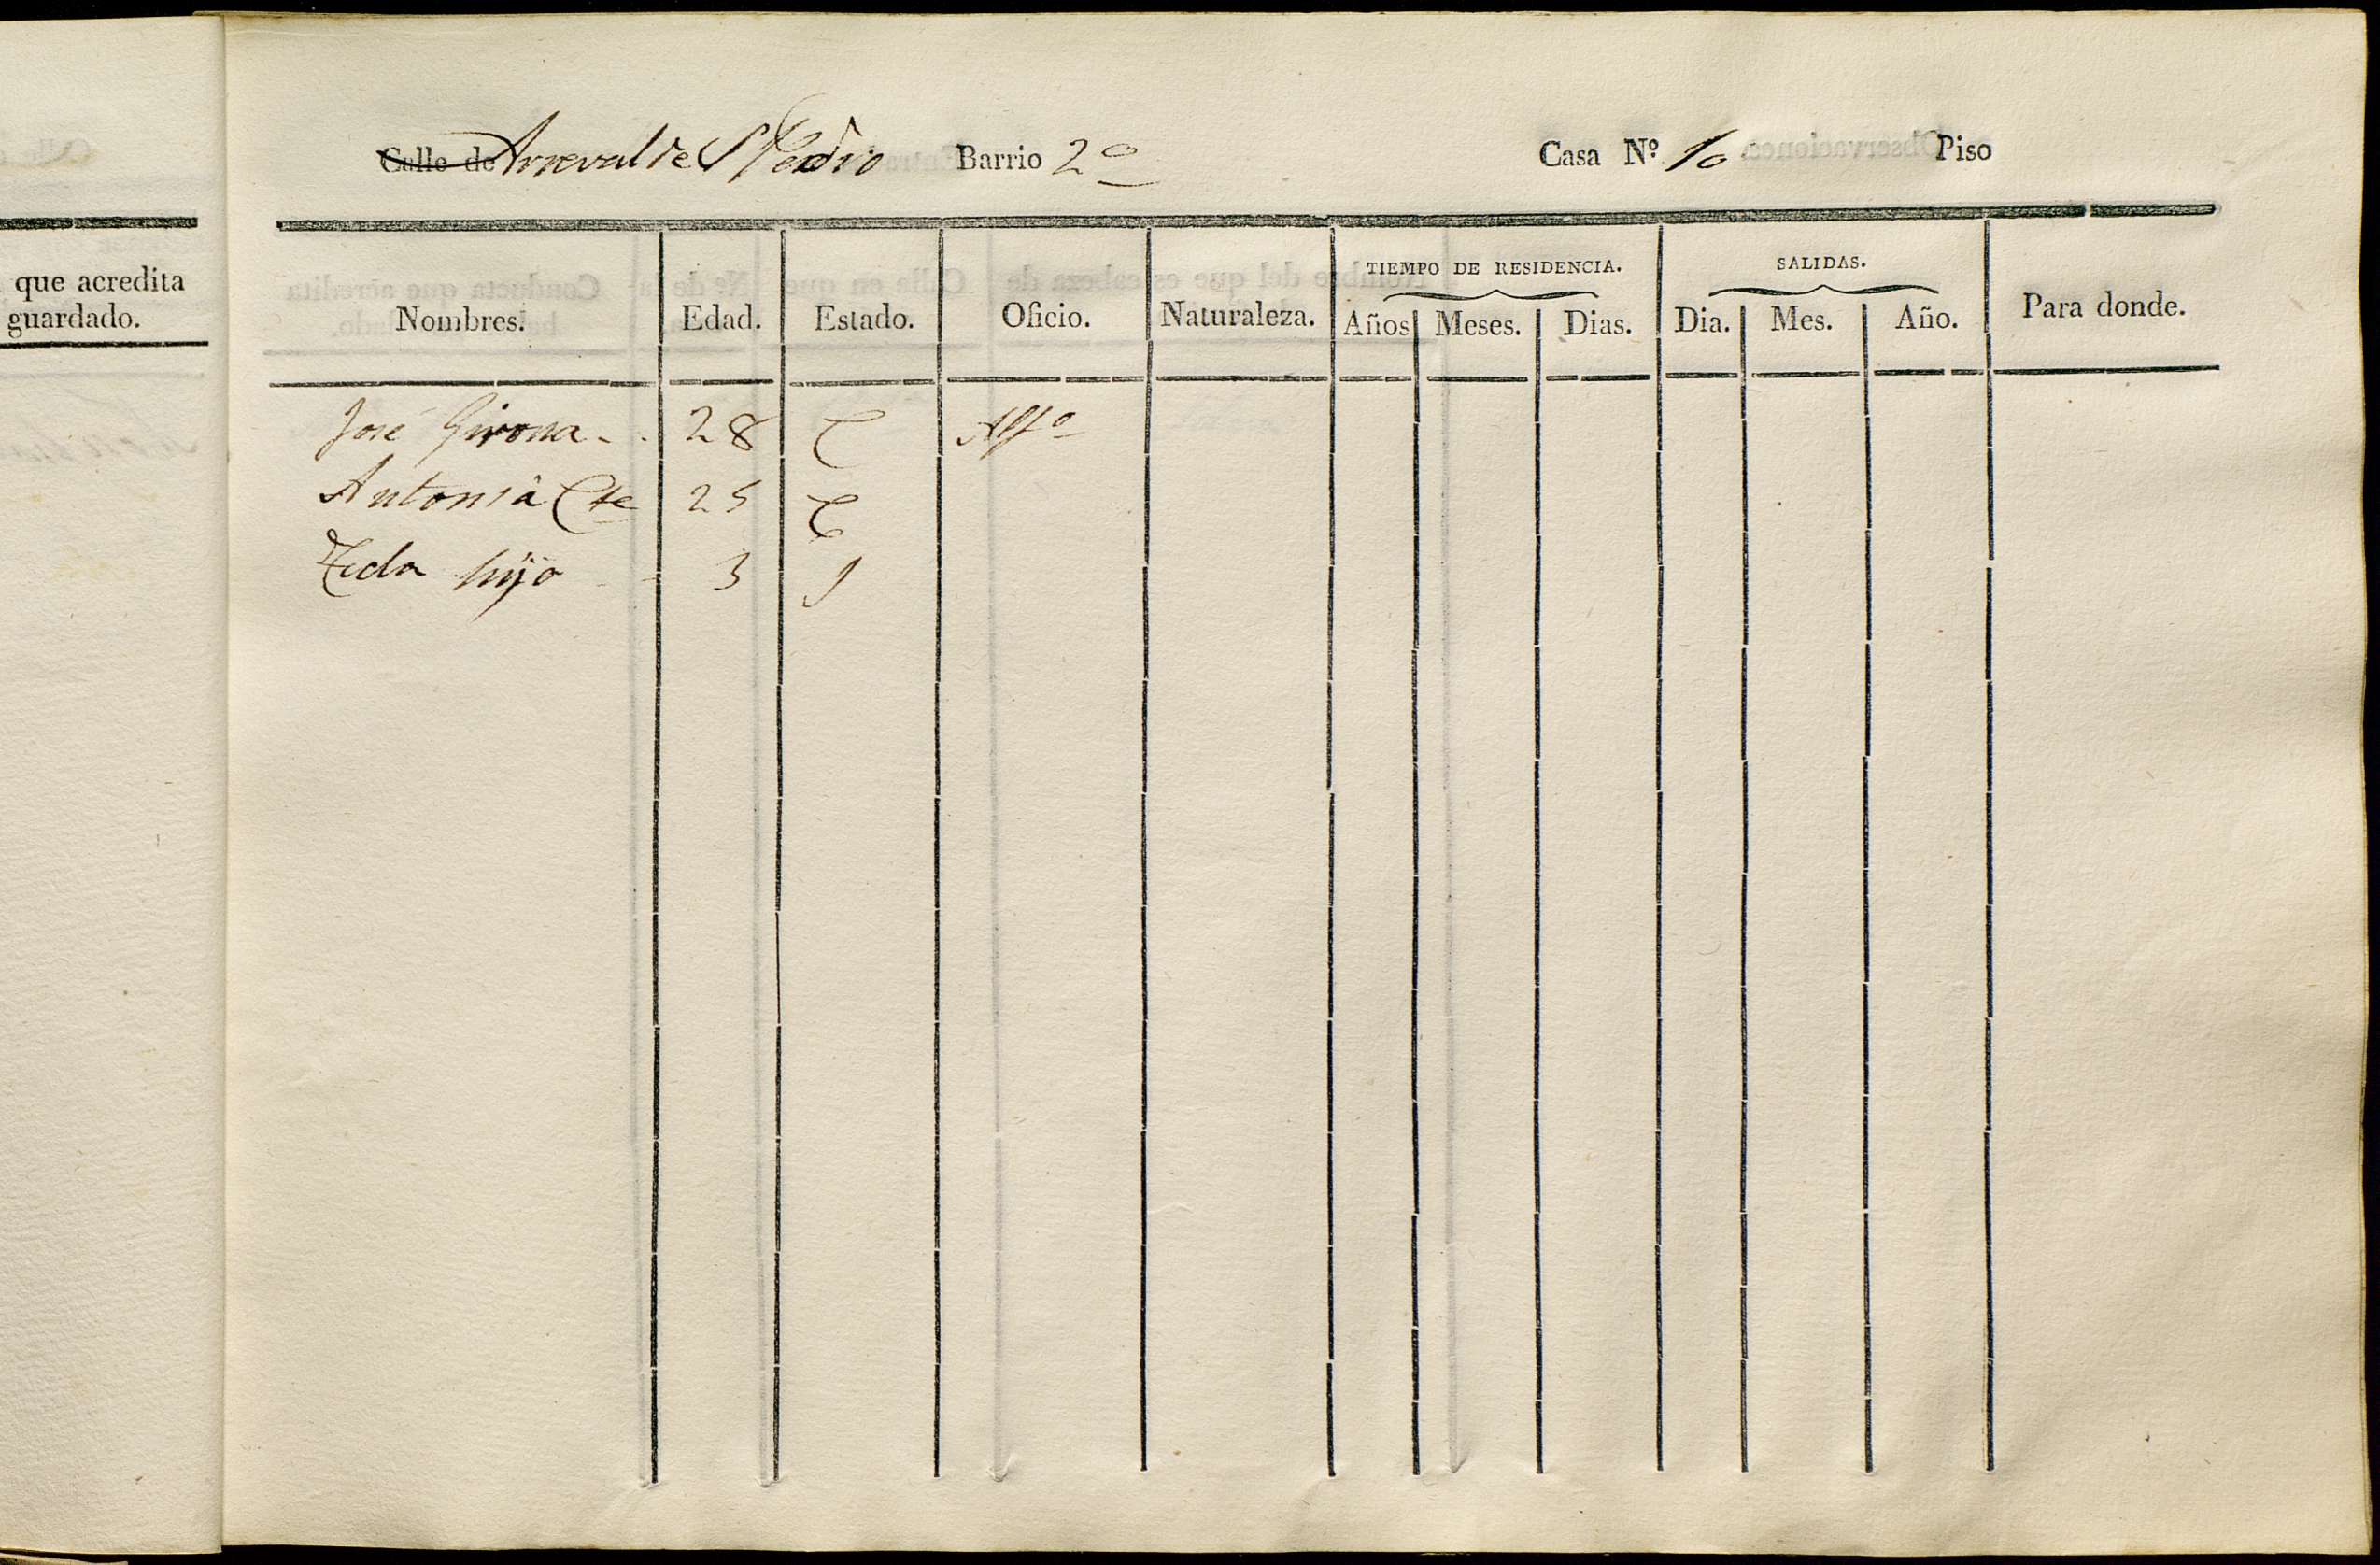 que acredita
guardado.
Calle de Arraval de S Pedro Barrio 2º Casa Nº. 10 Piso
TIEMPO DE RESIDENCIA. SALIDAS.
Nombres. Edad. Estado. Oficio. Naturaleza. Años Meses. Dias. Dia. Mes. Año. Para donde.
José Girona 28 C Alfº
Antonia Cte 25 C
Tecla hija 3 S